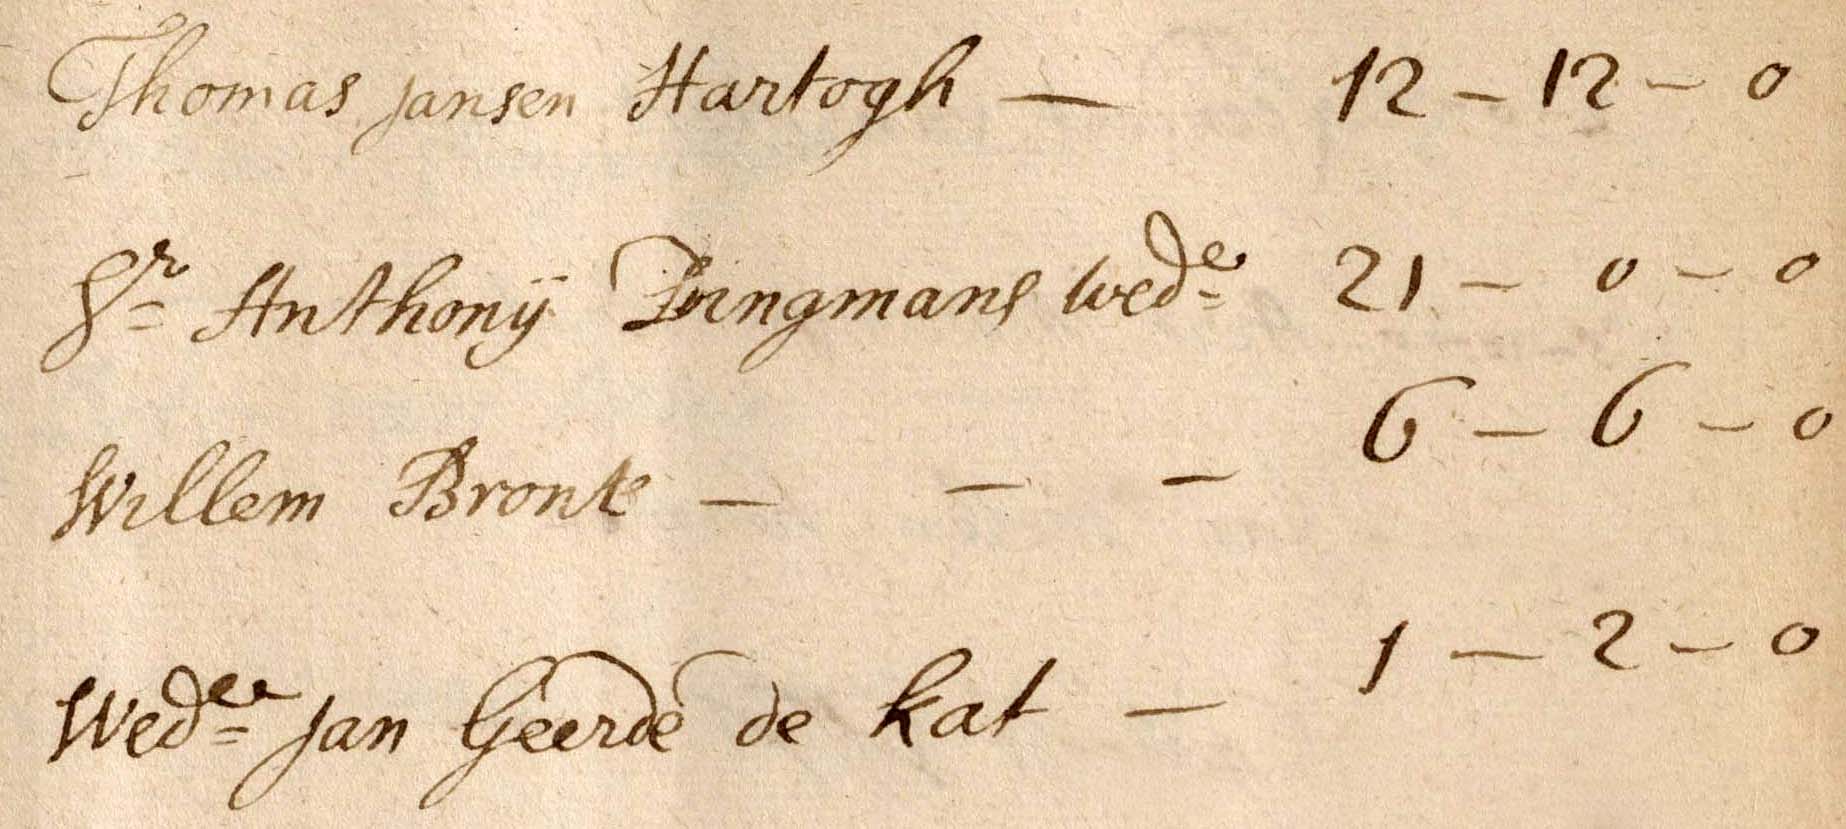 Thomas Jansen Hartogh — 12 - 12 - 0
Sr= Anthonij Dingmans wede= 21 - 0 - 0
Willem Bronk — — — 6 - 6 - 0
Wede= Jan Geerde de kat — 1 - 2 - 0